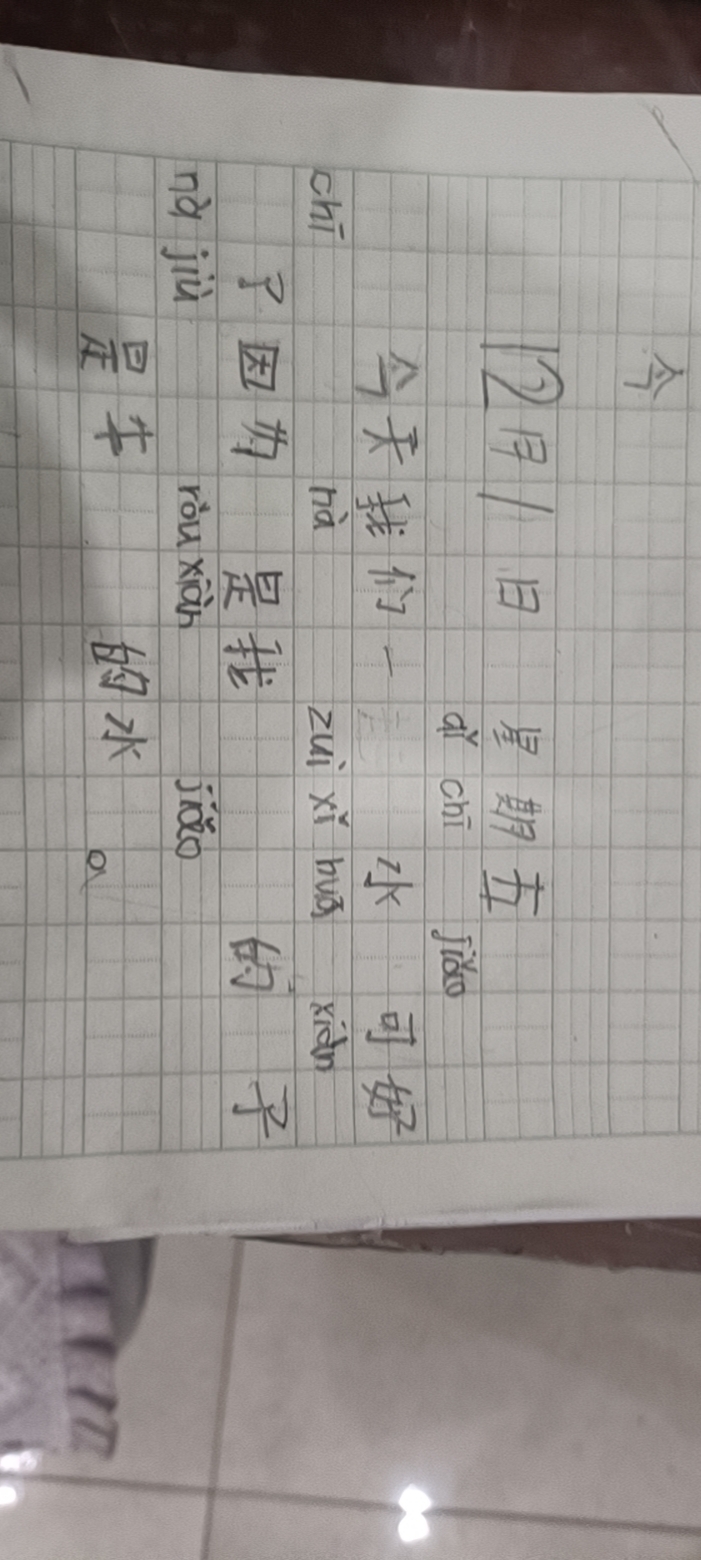 今
12月1日 星期五
qǐ chī jiǎo
今天我们一 水 可好
chī nà zuì xǐ huā xiàn
了因为 是我 的 子
nà jiù ròu xiàn jiǎo
是牛 的水 。